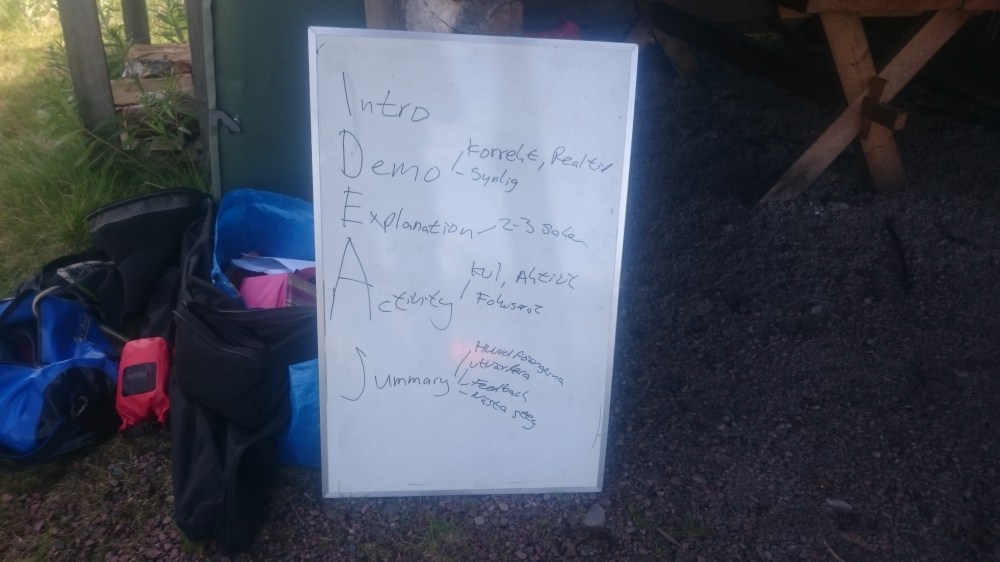 Intro
Demo - Korrekt, Realtid
- Synlig
Explanation - 2-3 saker
Activity - Kul, Aktivt
Fokuserat
Summary - Huvudpoängerna
utvärdera
- Feedback
- Nästa steg